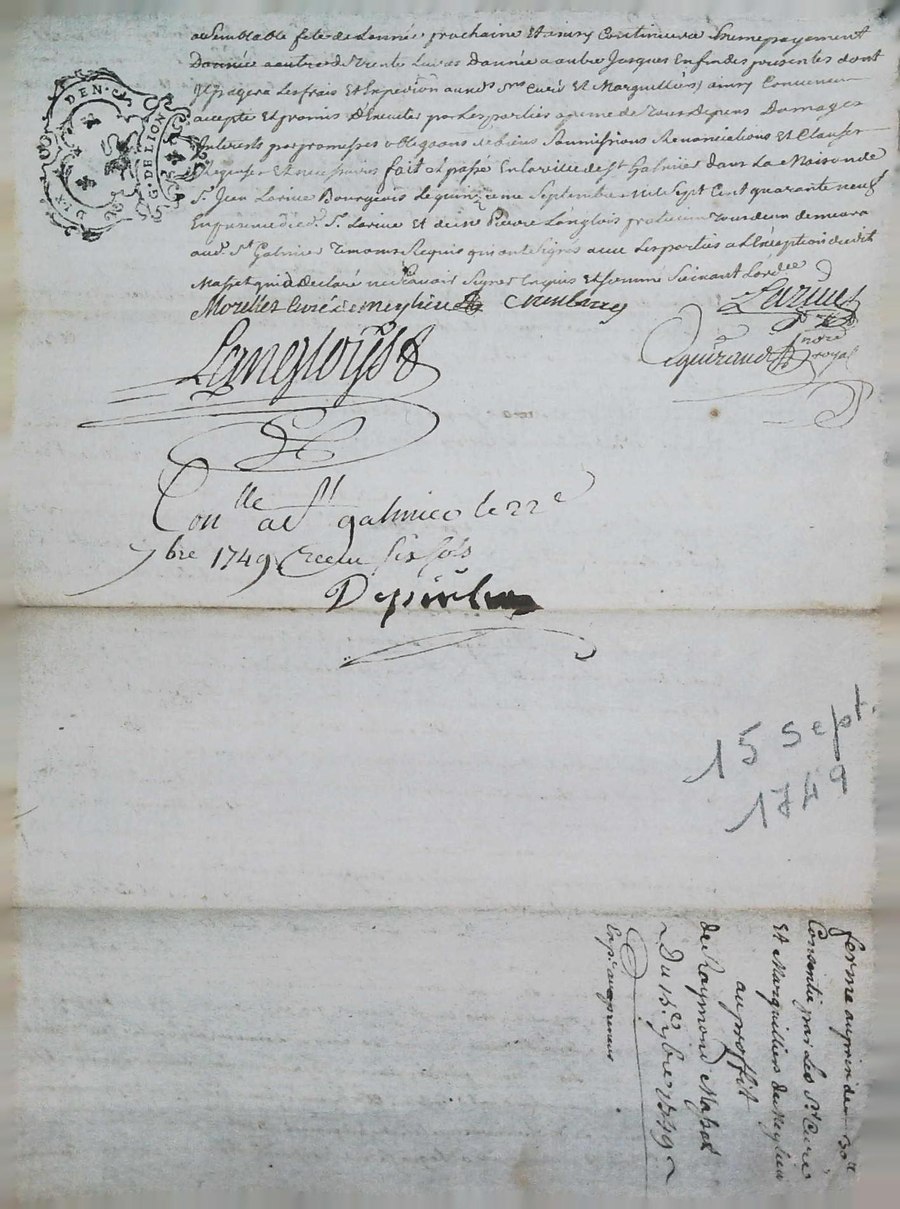 au Semblable fete de Lannée prochaine Et ainsy Continuera Le meme payement
Dannée a autre de trente Livres dannée a autre Jusques Enfin des presentes dont
Il payera Les frais Et Expedition aux d. Srs Curé Et Marguilliers, ainsy Convenu
accepté Et promis DExecuter par Les parties a peine de tous depens Domages
Interests par promesses obligaons de biens Soumissions Renonciations Et Clauses
Requises Et necessaires fait et passé En la ville de St Galmier dans La Maison de
Sr. Jean Larine Bourgeois Le quinzieme Septembre Mil Sept Cent quarante neuf
En presence dud. Sr. Larine Et de Sr Pierre Langlois praticien tous deux demeurant
aud. St Galmier temoins Requis qui ont Signés avec Les parties a LException dudit
Massot qui a Declaré ne Scavoir Signer Enquis Et Sommé Suivant Lordce
DEN.
G. DE LION
SIX
Morellet curé de meylieu
Larine
Langlois
nore
royal
Conlle a St galmier le 22e
7bre 1749 Receu six sols
15 sept.
1749
ferme au prix de 30#
Consentie par Les Srs Curé
Et Marguilliers de Meylieu
au proffit
de Raymond Massot
Du 15e 7bre 1749
Expon au preneur